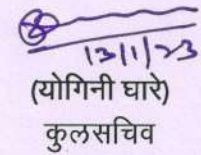 13/1/23
(योगिनी घारे)
कुलसचिव